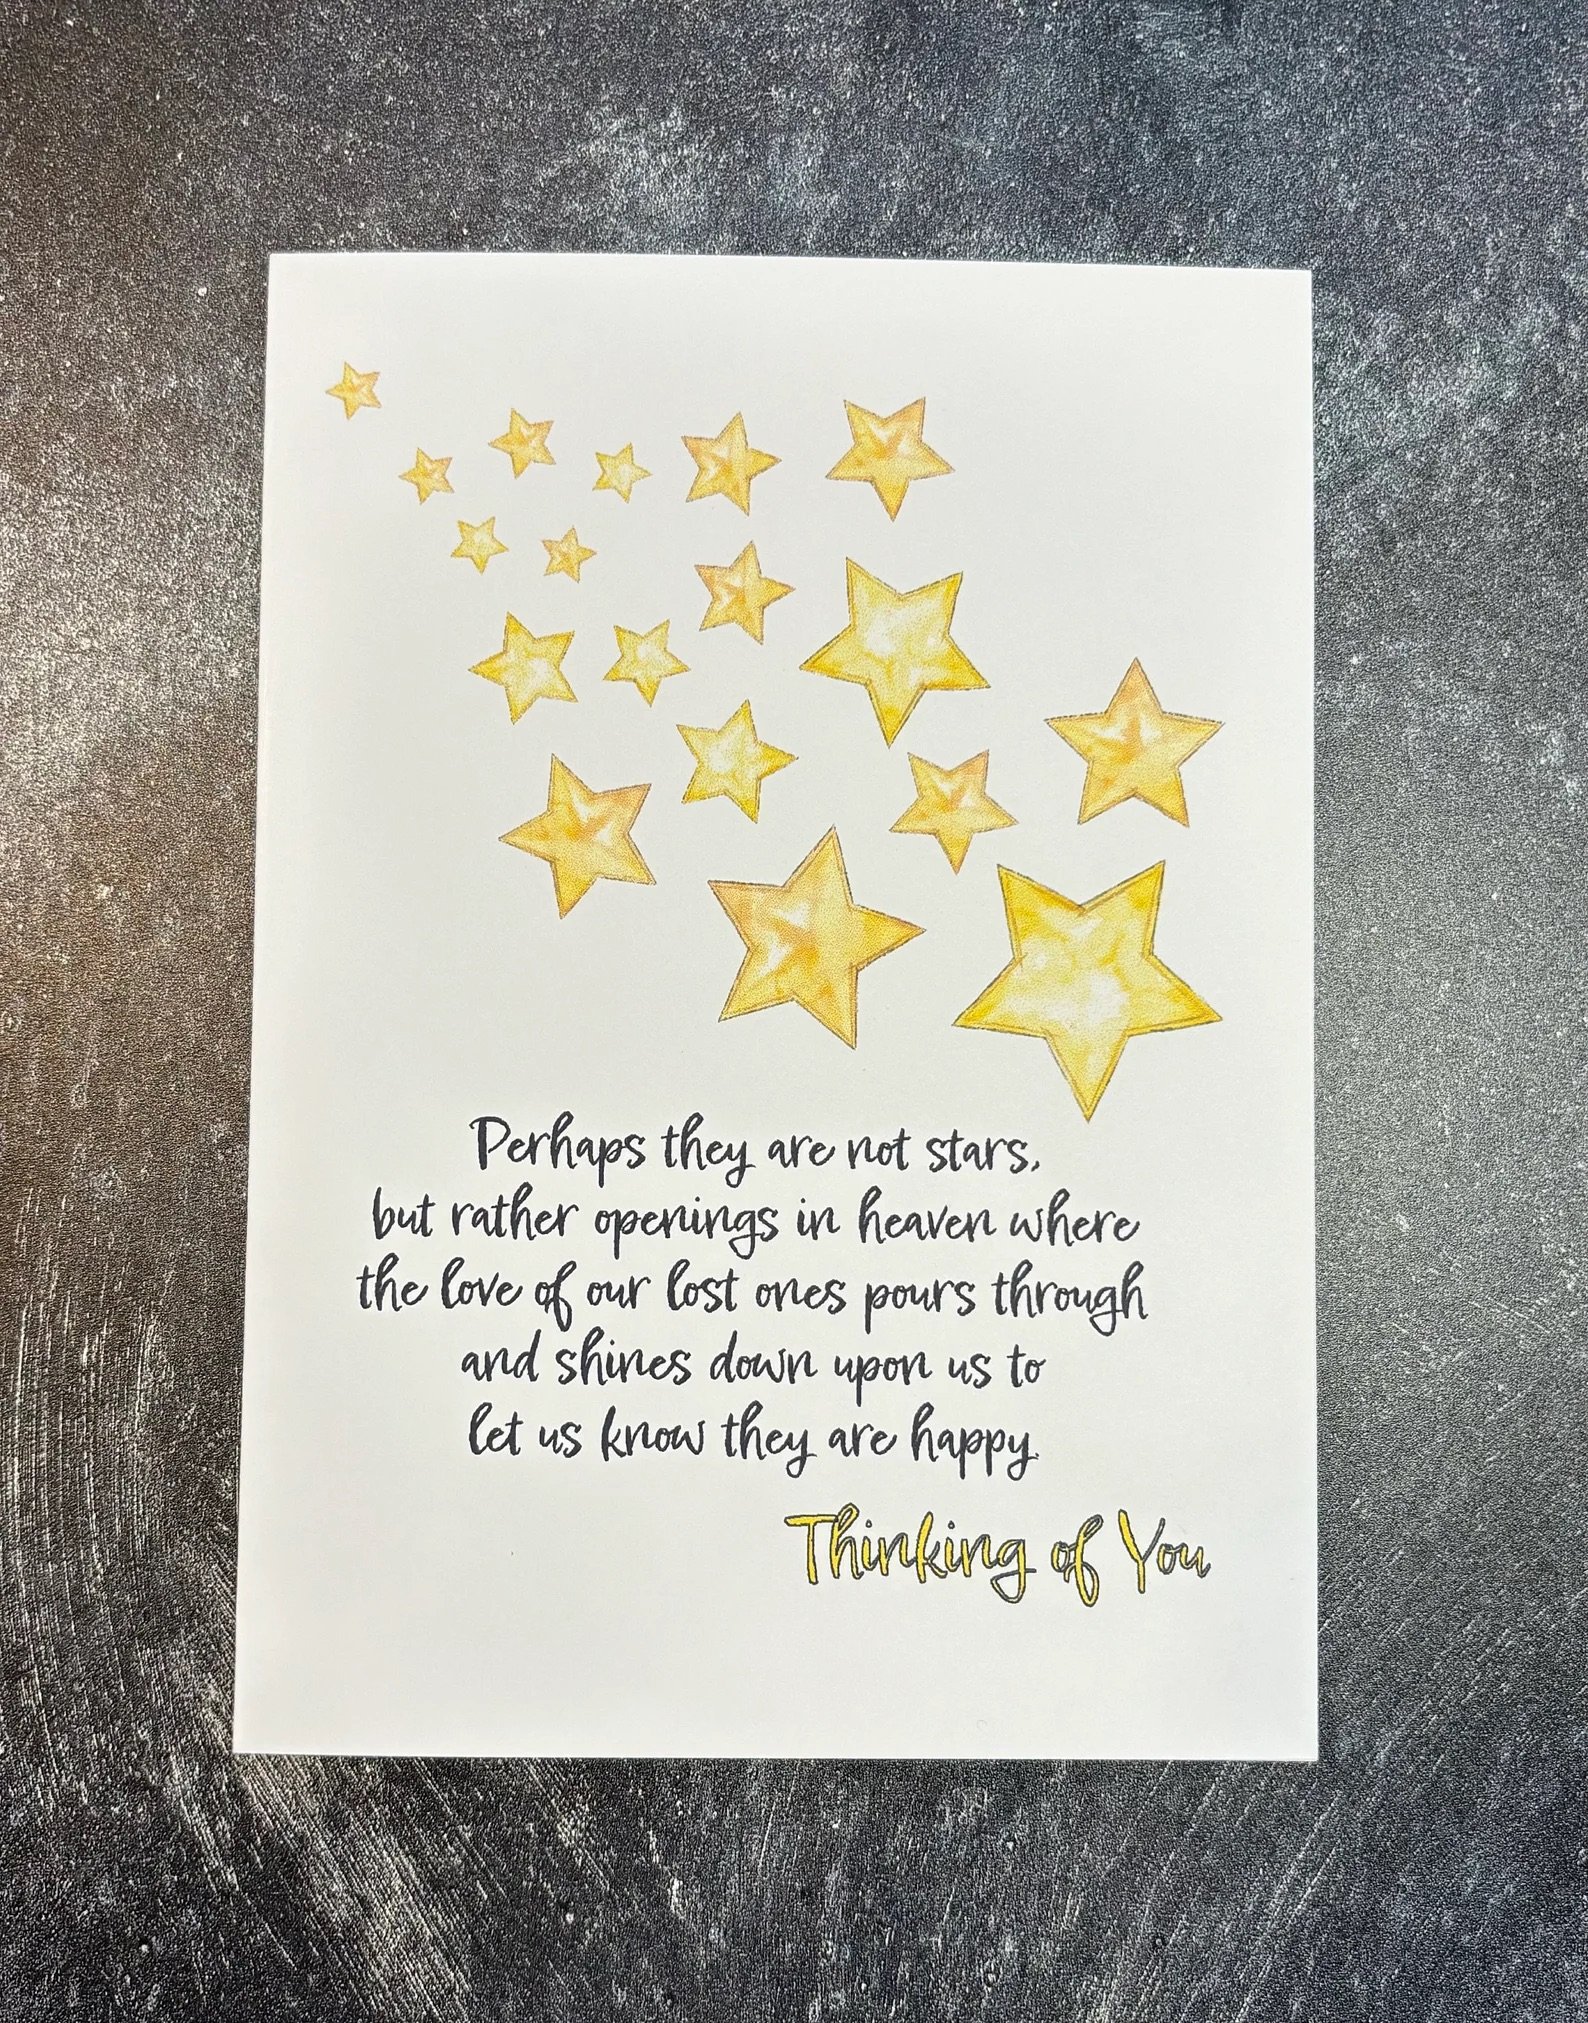 Perhaps they are not stars,
but rather openings in heaven where
the love of our lost ones pours through
and shines down upon us to
let us know they are happy.
Thinking of You